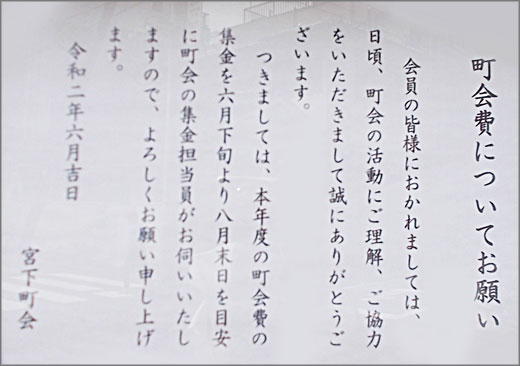 町会費についてお願い
会員の皆様におかれましては、
日頃、町会の活動にご理解、ご協力
をいただきまして誠にありがとうご
ざいます。
つきましては、本年度の町会費の
集金を六月下旬より八月末日を目安
に町会の集金担当員がお伺いいたし
ますので、よろしくお願い申し上げ
ます。
令和二年六月吉日
宮下町会